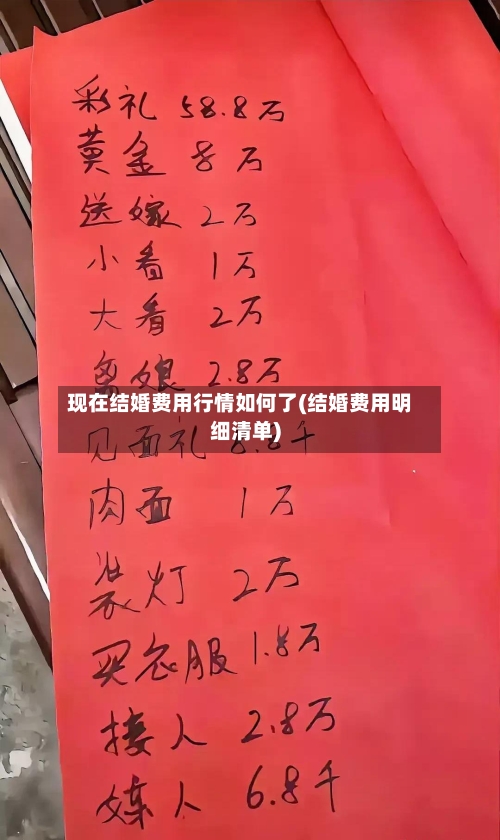 彩礼 58.8万
黄金 8万
送嫁 2万
小看 1万
大看 2万
离娘 2.8万
现在结婚费用行情如何了(结婚费用明
细清单)
见面礼 8.8千
肉面 1万
装灯 2万
买衣服 1.8万
接人 2.8万
媒人 6.8千